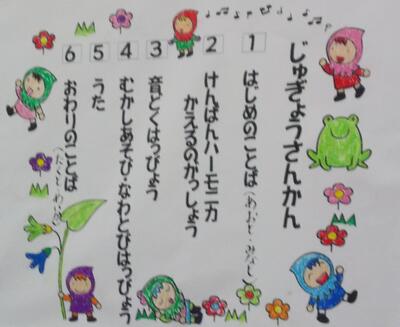 じゅぎょうさんかん
1 はじめのことば
2 けんばんハーモニカ
かえるのがっしょう
3 音どくはっぴょう
4 むかしあそび・なわとびはっぴょう
5 うた
6 おわりのことば